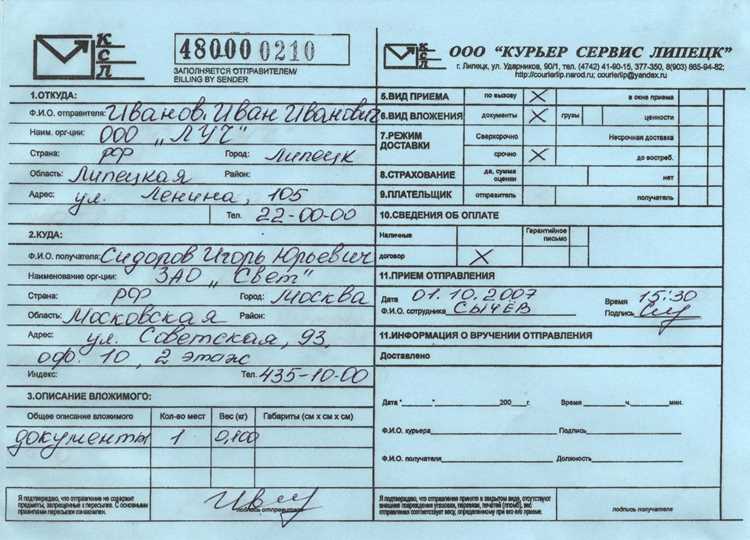 КСЛ
48000 0210
ЗАПОЛНЯЕТСЯ ОТПРАВИТЕЛЕМ/
BILLING BY SENDER
КСЛ
ООО "КУРЬЕР СЕРВИС ЛИПЕЦК"
г. Липецк, ул. Ударников, 90/1, тел. (4742) 41-90-15, 377-350, 8(903) 865-94-82;
http://courierlip.narod.ru; courierlip@yandex.ru
1.ОТКУДА:
Ф.И.О. отправителя: Иванов Иван Иванович
Наим. орг-ции: ООО "ЛУЧ"
Страна: РФ Город: Липецк
Область: Липецкая Район:
Адрес: ул. Ленина, 105
Тел. 22-00-00
2.КУДА:
Ф.И.О. получателя: Сидоров Игорь Юрьевич
Наименование орг-ции: ЗАО "Свет"
Страна: РФ Город: Москва
Область: Московская Район:
Адрес: ул. Советская, 93,
оф. 10, 2 этаж
Индекс: Тел. 435-10-00
3.ОПИСАНИЕ ВЛОЖИМОГО:
Общее описание вложимого Кол-во мест Вес (кг) Габариты (см х см х см)
документы 1 0,100
Я подтверждаю, что отправление не содержит
предметы, запрещенные к пересылке. С основными
правилами пересылки ознакомлен.
подпись отправителя
5.ВИД ПРИЕМА по вызову X в окне приема
6.ВИД ВЛОЖЕНИЯ документы X грузы ценности
7.РЕЖИМ ДОСТАВКИ Сверхсрочно Несрочная доставка
срочно X до востреб.
8.СТРАХОВАНИЕ да, сумма оценки нет
9.ПЛАТЕЛЬЩИК отправитель получатель
10.СВЕДЕНИЯ ОБ ОПЛАТЕ
Наличные Гарантийное письмо
договор X
11.ПРИЕМ ОТПРАВЛЕНИЯ
Дата 01.10.2007 Время 15:30
Ф.И.О. сотрудника СЫЧЁВ Подпись
11.ИНФОРМАЦИЯ О ВРУЧЕНИИ ОТПРАВЛЕНИЯ
Доставлено
Дата "____"____________200____г. Время ______ч.______мин.
Ф.И.О. курьера Подпись
Ф.И.О. получателя Должность
Я подтверждаю, что отправление принято в закрытом виде, отсутствуют
внешние повреждения упаковки, перевязи, печатей (пломб), вес
отправления соответствует весу, определенному при его приеме.
подпись получателя